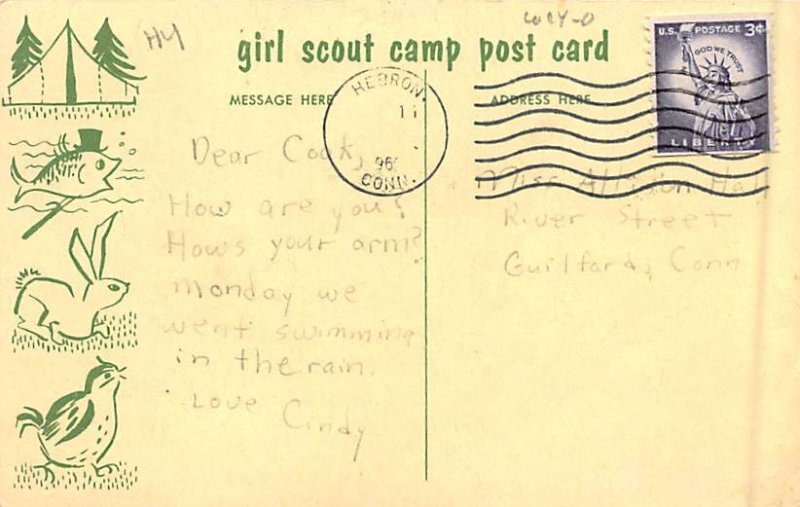 H4
girl scout camp post card
U.S. POSTAGE 3¢
IN GOD WE TRUST
LIBERTY
MESSAGE HERE
ADDRESS HERE
HEBRON.
11
196
CONN.
Dear Cook,
How are you?
Hows your arm?
monday we
went swimming
in the rain.
Love Cindy
Miss Hall
River Street
Guilford, Conn